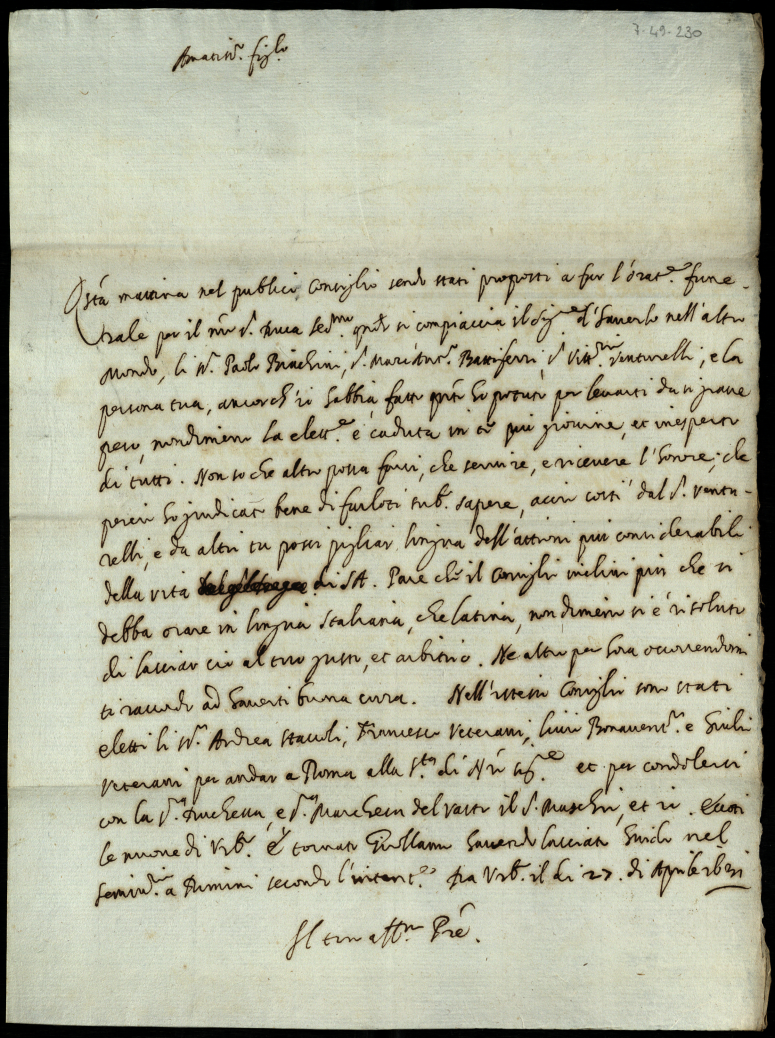 7-49-230
Amatis.o figl.o
Q.sta mattina nel publico Consiglio sendo stati proposti a far l'orat.e fune-
rale per il nro s.r Duca Ser.mo q.do si compiaccia il Sig.re d'haverlo nell'altro
Mondo, li ss.ri Paolo Bianchini, s.r Marc'Ant.o Battiferri, s.r Vitt.o Venturelli, e la
persona tua, ancorch'io habbia fatto q.to ho potuto per levarti da sì grave
peso, nondimeno la elett.e è caduta in te più giovine, et inesperto
di tutti. Non so che altro possa farvi, che servire, e ricevere l'honore; che
perciò ho giudicato bene di farloti sub.o sapere, acciò costì dal s.r Ventu-
relli, e da altri tu possi pigliar lingua dell'attioni più considerabili
della vita di SA. Pare che il Consiglio inclini più che si
debba orare in lingua Italiana, che latina, nondimeno si è risoluto
di lasciar ciò al tuo gusto, et arbitrio. Ne altro per hora occorrendomi
ti raccordo ad haverti buona cura. Nell'istesso Consiglio sono stati
eletti li ss.ri Andrea Staccoli, Francesco Veterani, Livio Bonavent.a e Giulio
Veterani per andar a Roma alla S.tà di Nro Sig.re et per condolersi
con la s.ra Duchessa, e s.ra Marchesa del Vasto il s.r Maschi, et io.
le nuove di Urb.o È tornato Girollamo havendo lasciato Guido nel
Semin.rio a Rimini secondo l'intent.e Da Urb.o il dì 27. di Aprile 1631
Il tuo aff.mo Pre.